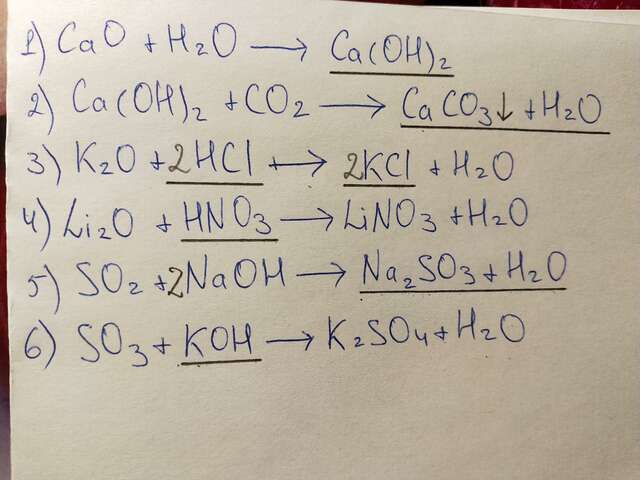 1) CaO + H₂O ⟶ Ca(OH)₂
2) Ca(OH)₂ + CO₂ ⟶ CaCO₃↓ + H₂O
3) K₂O + 2HCl ⟶ 2KCl + H₂O
4) Li₂O + HNO₃ ⟶ LiNO₃ + H₂O
5) SO₂ + 2NaOH ⟶ Na₂SO₃ + H₂O
6) SO₃ + KOH ⟶ K₂SO₄ + H₂O